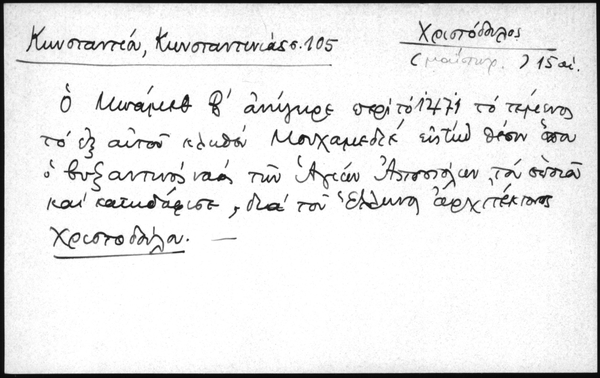 Κωνσταντιά, Κωνσταντινιάς σ. 105
Χριστόδουλος
(μαΐστωρ.) 15 αἰ.
Ὁ Μωάμεθ Β΄ ἀνήγειρε περὶ τὸ 1471 τὸ τέμενος
τὸ ἐξ αὐτοῦ κληθὲν Μουχαμεδιέ εἰς τὴν θέσιν ὅπου
ὁ βυζαντινὸς ναὸς τῶν Ἁγίων Ἀποστόλων, τὸν ὁποῖον
καὶ κατεδάφισε, διὰ τοῦ Ἕλληνος ἀρχιτέκτονος
Χριστοδούλου. —